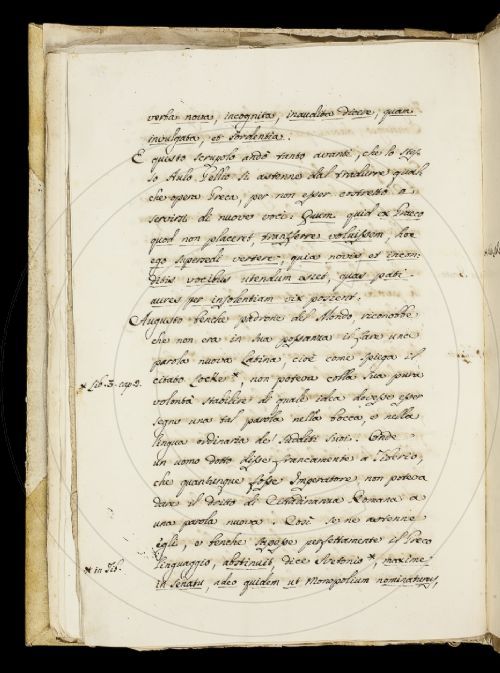 verba nova, incognita, inaudita dicere, quam
invulgata, et sordentia.
E questo scrupolo andò tanto avanti, che lo stes-
so Aulo Gellio si astenne dal tradurre qualch
che opera Greca, per non esser costretto a
servirsi di nuove voci. Quum quid ex Graeco
quod non placeret transferre voluissem, hoc
ego supersedi vertere, quia novis et incon-
ditis vocibus utendum esset, quas pati
aures per insolentiam vix possent.
Augusto benche padrone del Mondo, riconobbe
che non era in sua possanza il fare una
parola nuova Latina cioè come spiega il
* Lib. 3. cap. 2.
citato Locke *, non poteva colla sua pura
volontà stabilire di quale idea dovesse esser
segno una tal parola nella bocca, e nella
lingua ordinaria de' Sudditi suoi. Onde
un uomo dotto disse francamente a Tiberio,
che quantunque fosse Imperatore non poteva
dare il dritto di Cittadinanza Romana a
una parola nuova. Così se ne astenne
egli, e benche sapesse perfettamente il Greco
* in Tib.
linguaggio, abstinuit, dice Svetonio *, maxime
in Senatu, adeo quidem ut Monopolium nominaturus,